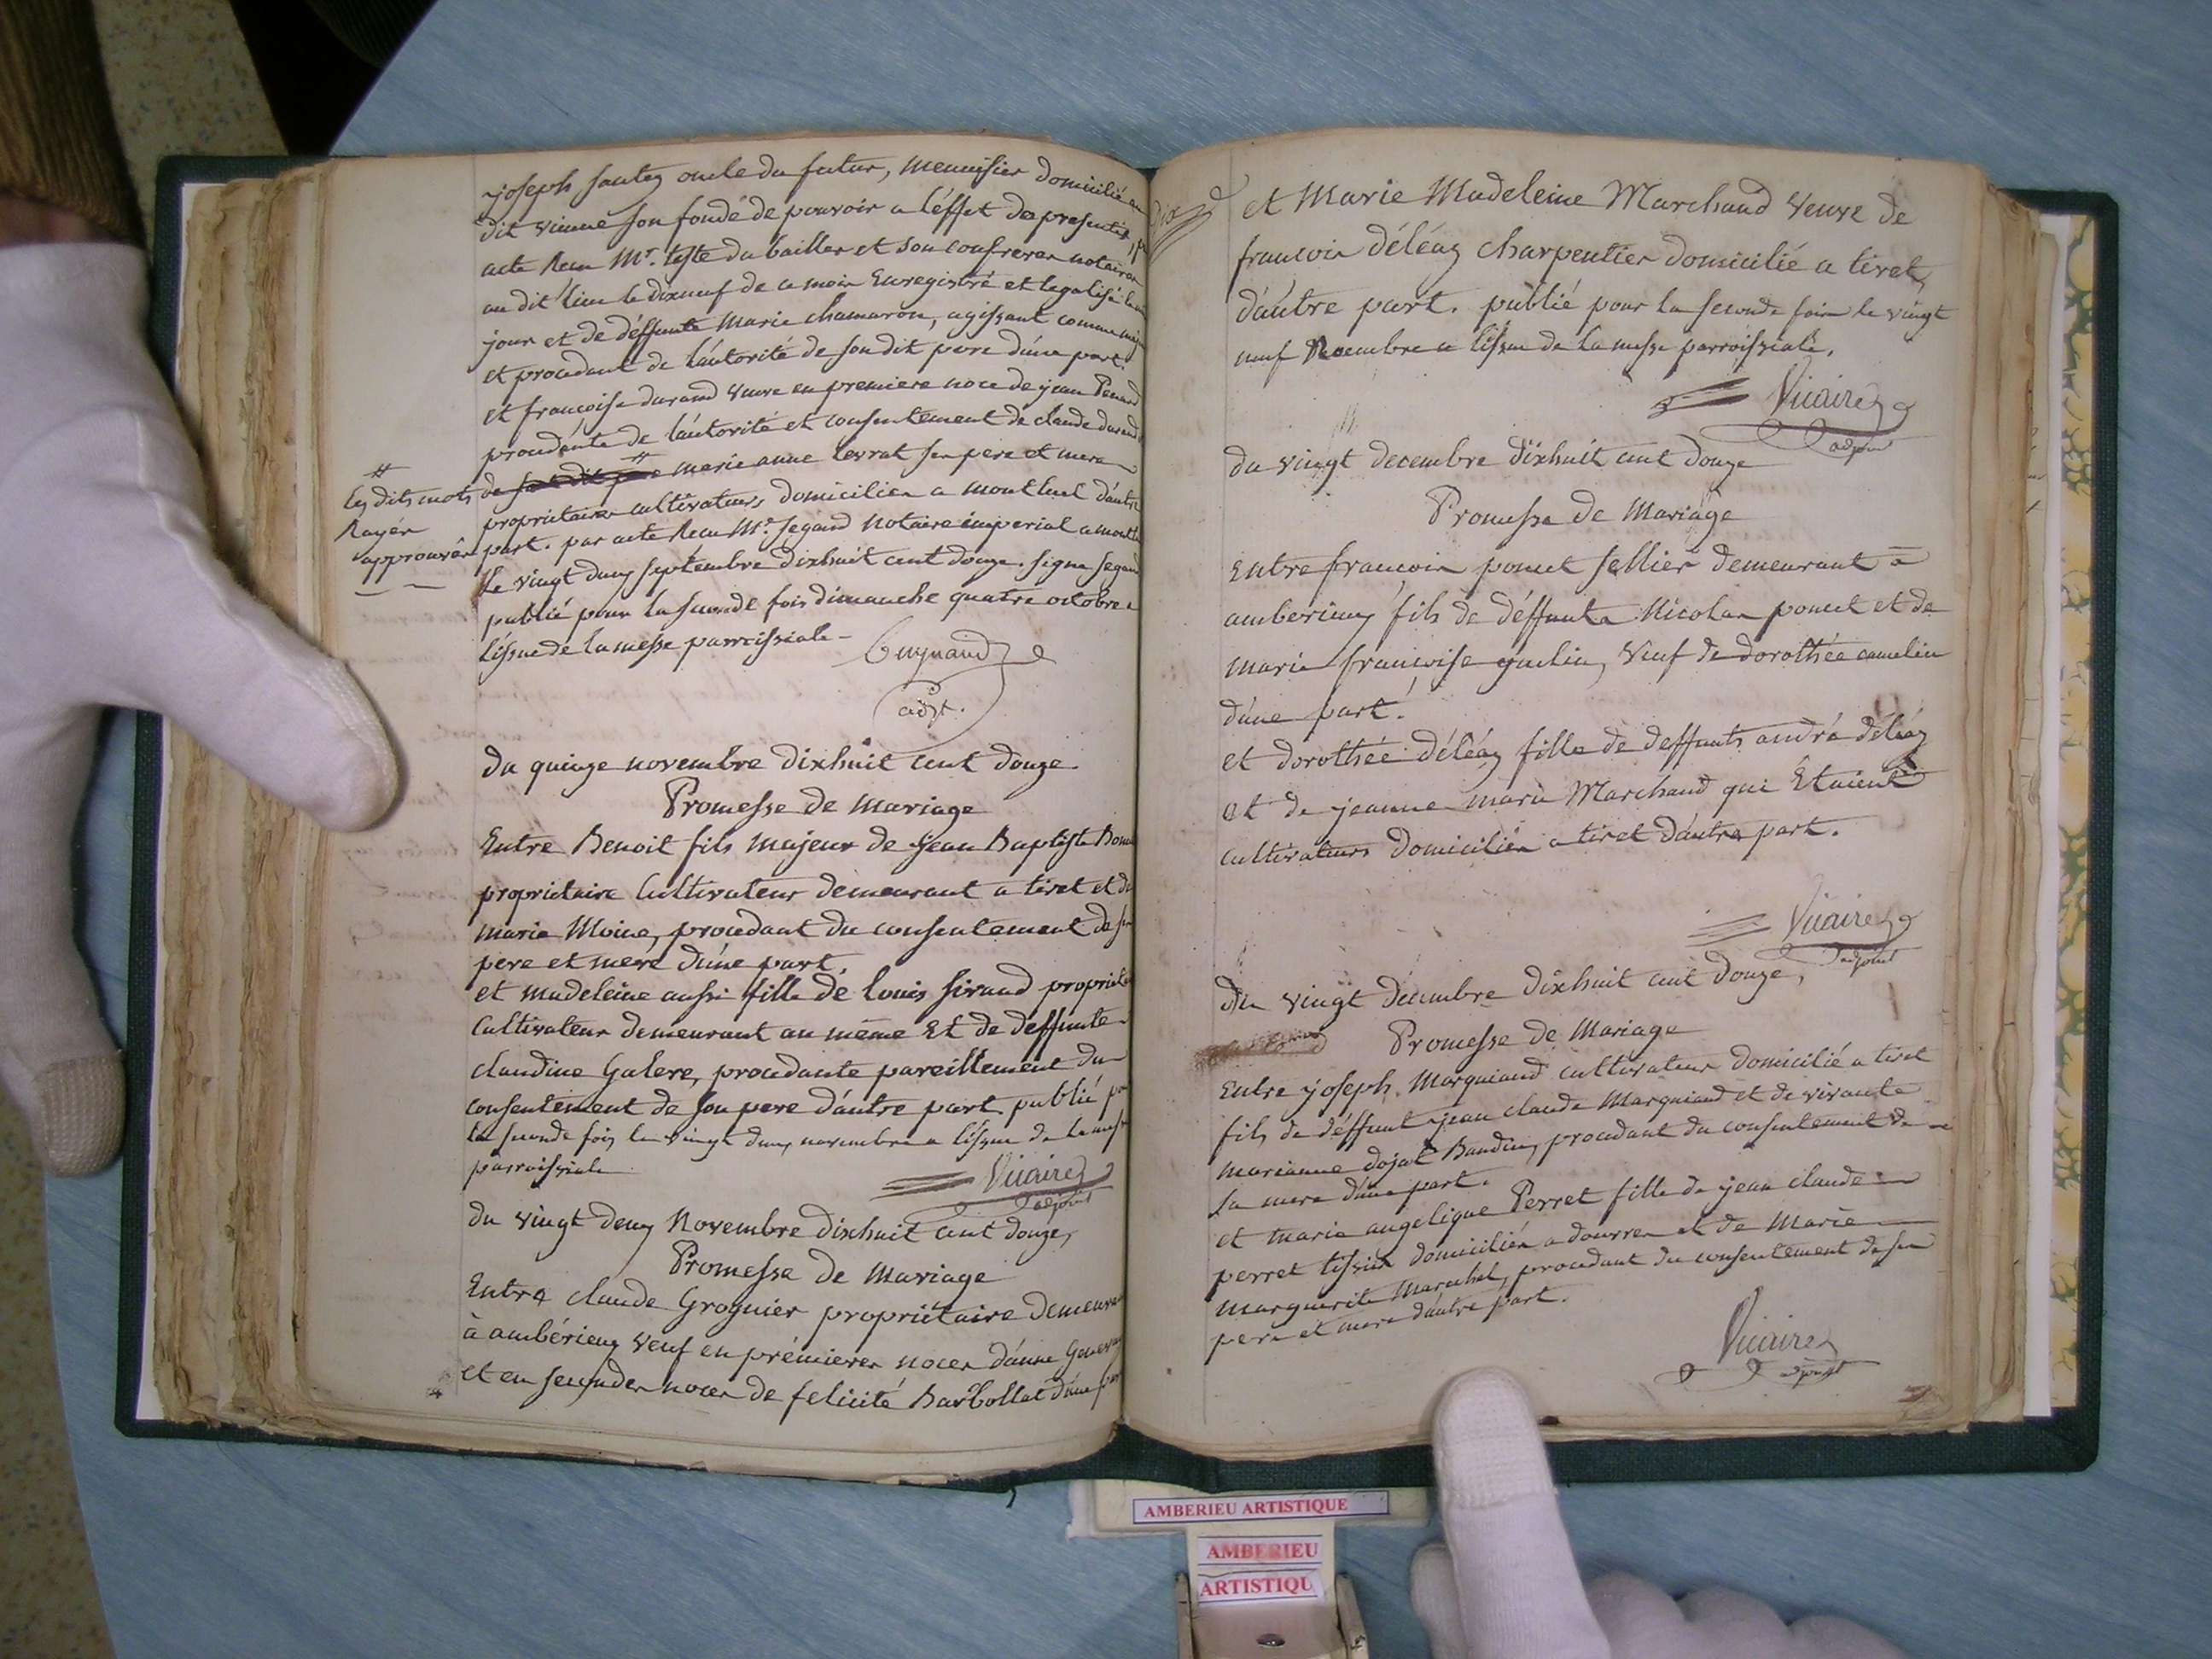 joseph sautez oncle du futur, menuisier domicilié au
dit vienne son fondé de pouvoir a l'éffet des presentes, p
acte Recu Mr. teste du bailler et son confreres notaires
au dit lieu le dixneuf de ce mois Enregistré et legalisé le
jour et de déffunte Marie chamaron, agissant comme maj
et procedant de l'autorité de son dit pere d'une part.
et francoise durand veuve en premiere noce de jean Penard
procedante de l'autorité et consentement de claude durand
de # marie anne levrat ses pere et mere
proprietaires cultivateurs domiciliés a montluel d'autre
part. par acte Recu Mr. segaud Notaire imperial a montl
le vingt deux septembre dixhuit cent douze. signé segaud
publié pour la seconde fois dimanche quatre octobre a
l'issue de la messe parroissiale
#
les dits mots
Rayés
approuvés
Guynaud
adjt.
du quinze novembre dixhuit cent douze.
Promesse de mariage
Entre Benoit fils majeur de jean Baptiste Bon
propriétaire Cultivateur demeurant a tiret et de
marie Moine, procedant du consentement de ses
pere et mere d'une part.
et madeleine aussi fille de louis siraud propriét
cultivateur demeurant au même Et de deffunte
claudine Galere, procedante pareillement du
consentement de son pere d'autre part. publié po
la seconde fois le vingt deux novembre a l'issue de la mess
parroissiale
Vicaire
adjoint
du vingt deux Novembre dixhuit cent douze,
Promesse de mariage
Entre claude Grognier propriétaire demeurant
à ambérieux veuf en prémieres noces d'anne
et en secondes noces de felicité Barbollat d'une part
et Marie Madeleine Marchand veuve de
francois déléaz charpentier domicilié a tiret,
d'autre part. publié pour la seconde fois le vingt
neuf Novembre a l'issue de la messe parroissiale.
Vicaire
adjoint
du vingt decembre dixhuit cent douze
Promesse de Mariage
Entre francois poncet sellier demeurant a
amberieux fils de déffunts Nicolas poncet et de
marie francoise guelin, veuf de dorothée camelin
d'une part.
et dorothée déléaz fille de deffunts andré déléaz
et de jeanne marie Marchand qui Etaient
cultivateurs domiciliés a tiret d'autre part.
Vicaire
adjoint
Du vingt décembre dixhuit cent douze,
Promesse de Mariage
Entre joseph Marguiand cultivateur domicilié a tiret
fils de déffunt jean claude Marguiand et de vivante
marianne dojat Baudin, procedant du consentement de
sa mere d'une part.
et marie angelique Perret fille de jean claude
perret tissier domiciliés a douvres et de Marie
marguerite Marechal, procedant du consentement de ses
pere et mere d'autre part.
Vicaire
adjoint
AMBERIEU ARTISTIQUE
AMBERIEU
ARTISTIQU